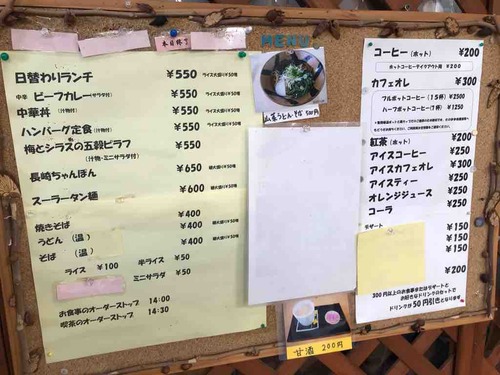 本日終了
MENU
日替わりランチ ¥550 ライス大盛り¥50増
中辛 ビーフカレー(サラダ付) ¥550 ライス大盛り¥50増
中華丼 (汁物付) ¥550 ライス大盛り¥50増
ハンバーグ定食 (汁物付) ¥550 ライス大盛り¥50増
梅とシラスの五穀ピラフ ¥550
(汁物・ミニサラダ付)
長崎ちゃんぽん ¥650 麺大盛り¥50増
スーラータン麺 ¥600 麺大盛り¥50増
¥400
焼きそば ¥400 麺大盛り¥50増
うどん (温) ¥400
そば (温)
ライス ¥100 半ライス ¥50
ミニサラダ ¥50
お食事のオーダーストップ 14:00
喫茶のオーダーストップ 14:30
山菜うどん・そば 500円
甘酒 200円
コーヒー (ホット) ¥200
ホットコーヒーテイクアウト用 ¥200
カフェオレ ¥300
フルポットコーヒー (15杯) ¥2500
ハーフポットコーヒー (7杯) ¥1250
紅茶 (ホット) ¥200
アイスコーヒー ¥250
アイスカフェオレ ¥300
アイスティー ¥250
オレンジジュース ¥250
コーラ ¥250
デザート
¥150
¥150
¥150
¥200
300円以上のお食事またはデザートと
お好きなドリンクのセットで
ドリンクが50円引きとなります